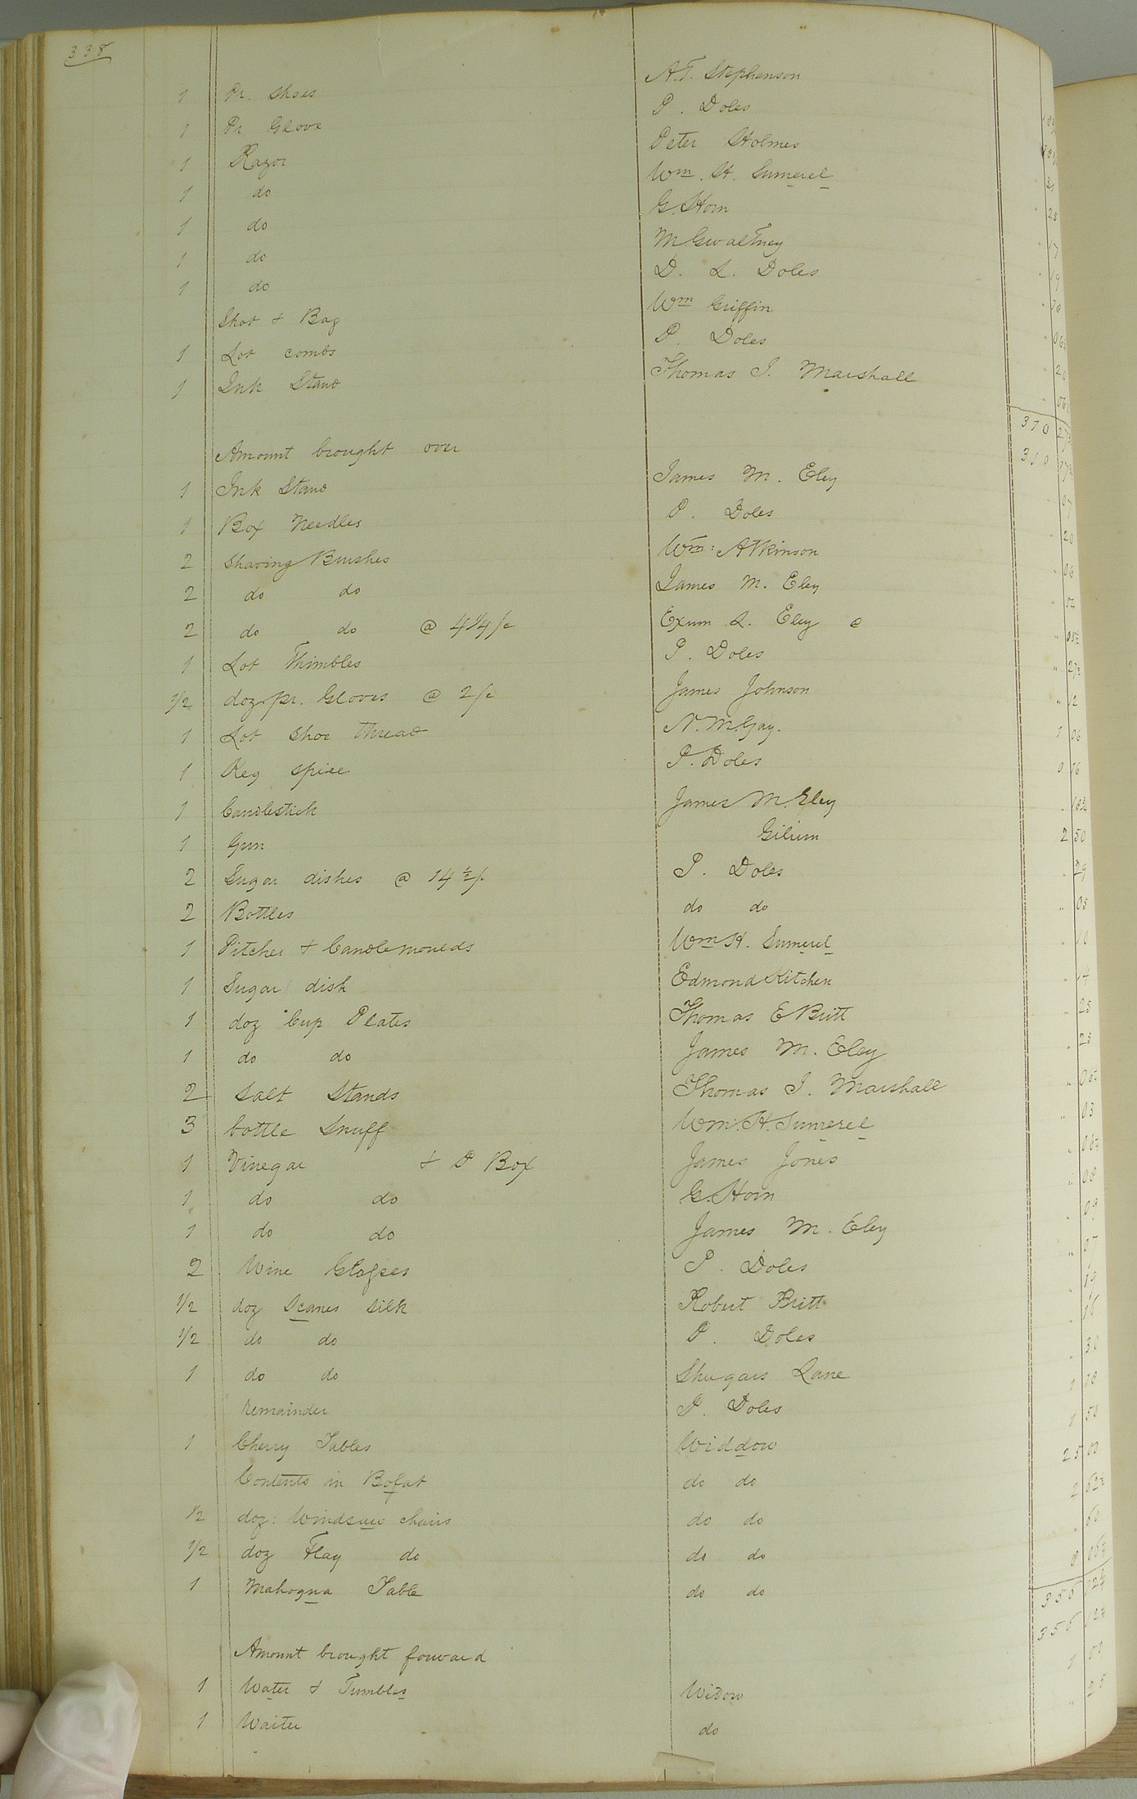 338
1 Pr. Shoes A.T. Stephenson
1 Pr Glove P. Doles
1 Razor Peter Holmes
1 do Wm. H. Sumerel
1 do G. Horn
1 do M Gwaltney
1 do D. L. Doles
Shot & Bag Wm Griffin
1 Lot combs P. Doles
1 Ink Stand Thomas J. Marshall
370
Amount brought over
1 Ink Stand James M. Eley
1 Box Needles P. Doles
2 Shaving Brushes Wm: Atkinson
2 do do James M. Eley
2 do do @ 4 1/4 /c Exum L. Eley @
1 Lot Thimbles P. Doles
1/2 doz pr. Gloves @ 2/c James Johnson 12
1 Lot Shoe thread N. M. Gay. 1 06
1 Keg spice P. Doles 0 16
1 Candlestick James M. Eley
1 Gun Gilium 2 50
2 Sugar dishes @ 14 1/2 /c P. Doles 29
2 Bottles do do 05
1 Pitcher & Candlemoulds Wm H. Sumerel 10
1 Sugar dish Edmond Kitchen 14
1 doz Cup Plates Thomas E Britt 25
1 do do James M. Eley 25
2 Salt Stands Thomas J. Marshall
3 bottle Snuff Wm. H. Sumerel 03
1 Vinegar & D Box James Jones
1 do do G. Horn 08
1 do do James M. Eley 09
2 Wine Glasses P. Doles 07
1/2 doz Scanes Silk Robert Britt
1/2 do do P. Doles
1 do do Shugars Lane 30
remainder P. Doles
1 Cherry Tables Widdow 1 50
Contents in Bofat do do 25 00
1/2 doz: Windsaw chairs do do
1/2 doz Flag do do do
1 Mahogna Table do do
Amount brought forward
1 Water & Tumbles Widow 1 00
1 Waiter do 25